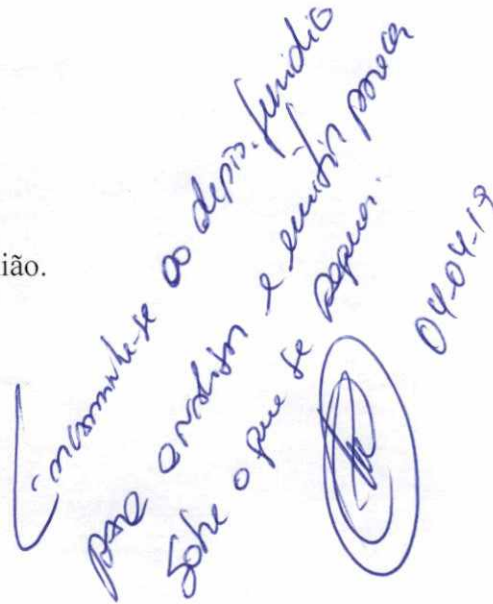 ião.
Encaminhe-se ao depto. jurídico
para analisar e emitir parecer
sobre o que se requer.
04-04-19